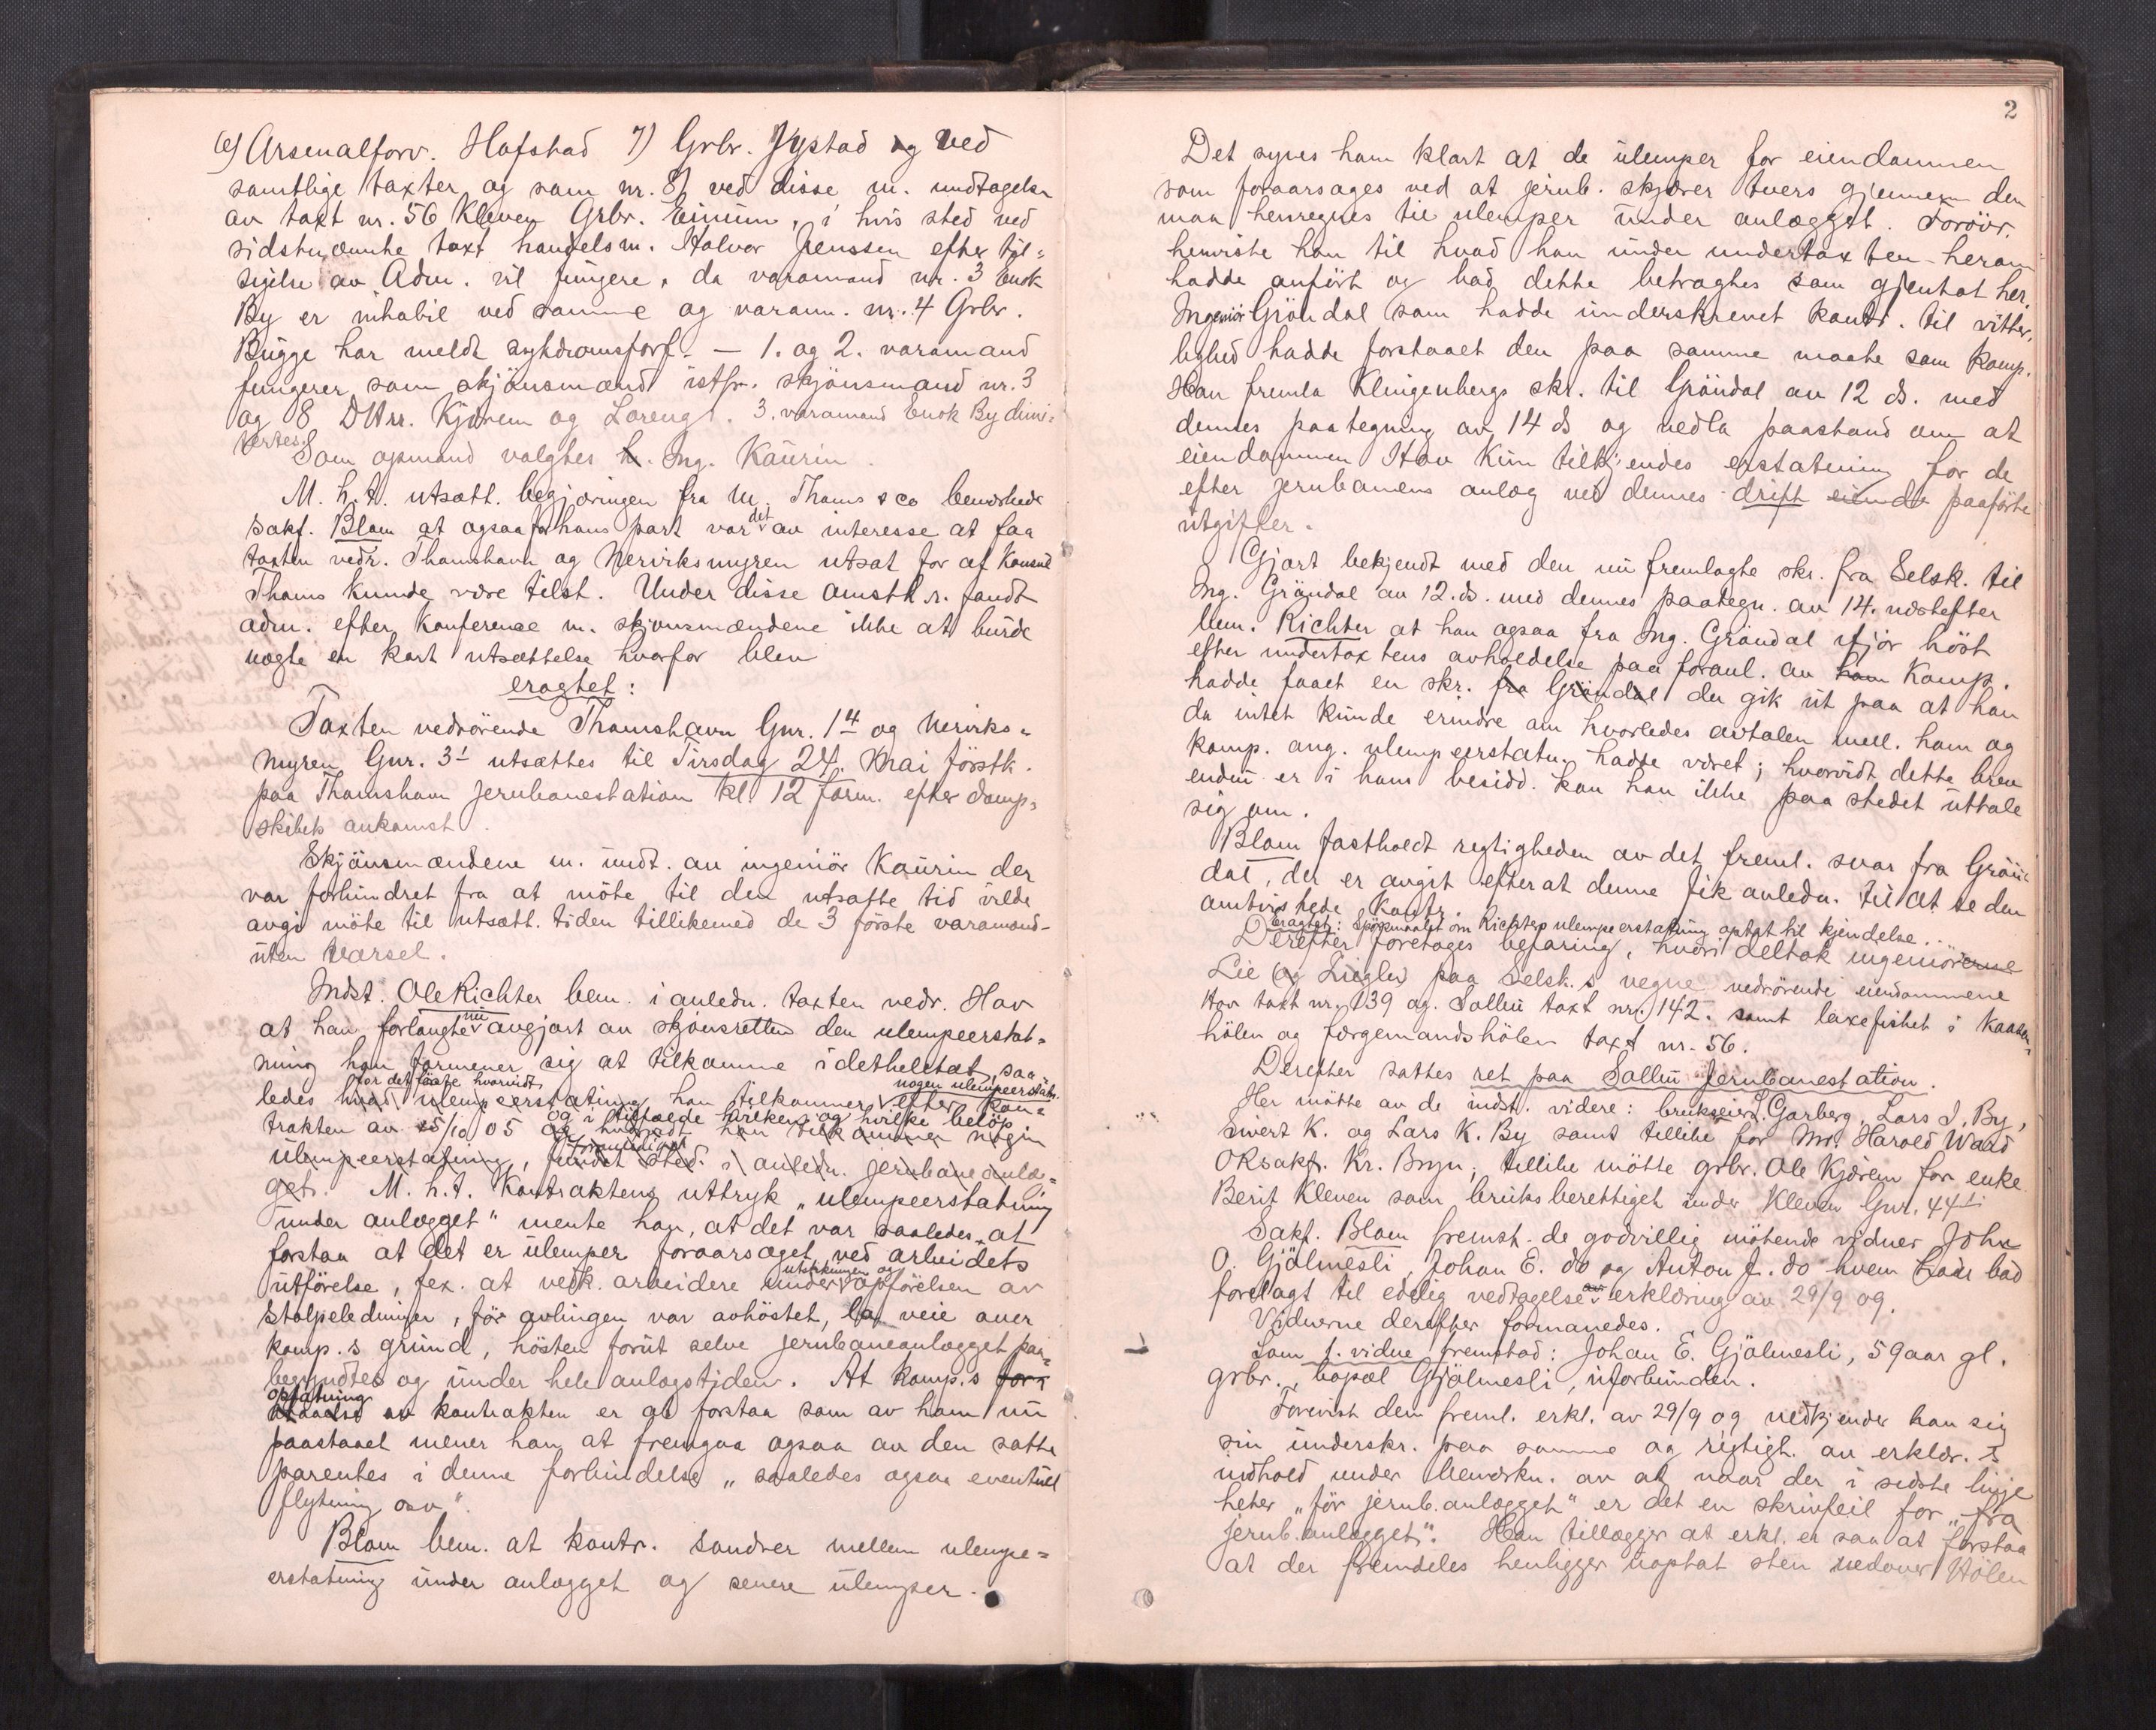 6) Arsenalforv. Hofstad 7) Grbr. Jystad og ved
samtlige taxter og som nr. 8) ved disse m. undtagelse
av taxt nr. 56 Kleven Grbr. Einum, i hvis sted ved
sidstnævnte taxt handelsm. Halvor Jenssen efter til=
sigelse av Adm. vil fungere, da varamand nr. 3 Enok
By er inhabil ved samme og varam. nr. 4 Grbr.
Bugge har meldt sykdomsforf. — 1. og 2. varamand
fungerer som skjönsmænd istf. skjönsmand nr. 3
og 8 DHrr. Kjörem og Loreng. 3. varamand Enok By dimi=
tertes.
Som opmand valgtes h. Ing. Kaurin.
M. h. t. utsætt. begjæringen fra M. Thams & co bemerkede
Sakf. Blom at ogsaa for hans part var det av interesse at faa
taxten vedr. Thamshavn og Nerviksmyren utsat for at Konsul
Thams kunde være tilst. Under disse omsth. r. fandt
adm. efter Konference m. skjönsmændene ikke at burde
nægte en kort utsættelse hvorfor blev
eragtet:
Taxten vedrörende Thamshavn Gnr. 1⁴ og Nerviks=
myren Gnr. 3¹ utsættes til Tirsdag 24. Mai förstk.
paa Thamshavn Jernbanestation kl. 12 form. efter damp=
skibets ankomst.
Skjönsmændene m. undt. av ingeniör Kaurin der
var forhindret fra at möte til den utsatte tid vilde
avgi möte til utsætt. tiden tillikemed de 3 förste varamænd
uten varsel.
Indst. Ole Richter bem. i anledn. taxten vedr. Hov
at han forlangte nu avgjort av skjönsretten den ulempeerstat=
ning han formener sig at tilkomme i det heletat, saa=
for det förste hvorvidt nogen ulempeerstatn.
ledes hvad ulempeerstatning han tilkommer efter kon=
og i tilfælde hvilken og hvilke belöp
trakten av 25/10 05 og hvorvidt han tilkommer nogen
ulempeerstatning, fundet sted i anledn. jernbaneanlæ=
get. M. h. t. Kontraktens uttryk „ulempeerstatning
under anlægget" mente han, at det var saaledes at
forstaa at det er ulemper foraarsaget ved arbeidets
utstikningen og
utförelse, f ex. at vedk. arbeidere under opförelsen av
stolpeledninger, för avlingen var avhöstet, la veie over
komp.s grund, hösten forut selve jernbaneanlægget paa=
begyndtes og under hele anlægstiden. At komp.s for=
opfatning
staaelse av kontrakten er at forstaa som av ham nu
paastaaet mener han at fremgaa ogsaa av den satte
parentes i denne forbindelse „saaledes ogsaa eventuel
flytning osv".
Blom bem. at kontr. sondrer mellem ulempe=
erstatning under anlægget og senere ulemper.
2
Det synes ham klart at de ulemper for eiendommen
som foraarsages ved at jernb. skjærer tvers gjennem den
maa henregnes til ulemper under anlægget. Forövr.
henviste han til hvad han under undertaxten herom
hadde anfört og bad dette betragtes som gjentat her.
Ingeniör Gröndal som hadde underskrevet kontr. til vitter=
lighed hadde forstaaet den paa samme maate som komp.
Han fremla Klingenbergs skr. til Gröndal av 12 ds. med
dennes paategning av 14 ds og nedla paastand om at
eiendommen Hov kun tilkjendes erstatning for de
efter jernbanens anlæg ved dennes drift eiendo paaförte
utgifter.
Gjort bekjendt med den nu fremlagte skr. fra Selsk. til
Ing. Gröndal av 12. ds. med dennes paategn. av 14. næstefter
bem. Richter at han ogsaa fra Ing. Gröndal ifjor höst
efter undertaxtens avholdelse paa foranl. av ham Komp.
hadde faaet en skr. fra Gröndal der gik ut paa at han
da intet kunde erindre om hvorledes avtalen mell. ham og
komp. ang. ulempeerstatn. hadde været; hvorvidt dette brev
endnu er i hans besidd. kan han ikke paa stedet uttale
sig om.
Blom fastholdt rigtigheden av det freml. svar fra Grön=
dal, der er avgit efterat denne fik anledn. til at se den
omtvistede kontr.
Eragtet: Spörsmaalet om Richters ulempeerstatning optat til kjendelse.
Derefter foretages befaring, hvori deltok ingeniörerne
Lie og Ziegler paa Selsk.s vegne vedrörende eiendommene
Hov taxt nr. 139 og Solbu taxt nr. 142 samt laxefisket i Kaasa=
hölen og Færgemandshölen taxt nr. 56.
Derefter sattes ret paa Solbu Jernbanestation.
Her mötte av de indst. videre: brukseier Garberg, Lars J. By,
Sivert K. og Lars K. By samt tillike for Mr. Harold Ward
OKsakf. Kr. Bryn; tillike mötte grbr. Ole Kjörem for enke
Berit Kleven som bruksberettiget under Kleven Gnr. 44¹
Sakf. Blom fremst. de godvillig mötende vidner John
O. Gjölmesli, Johan E. do og Anton J. do hvem han bad
forelagt til edelig vedtagelse av erklæring av 29/9 09.
Vidnerne derefter formanedes.
Som 1. vidne fremstod: Johan E. Gjölmesli, 59 aar gl.
grbr., bopæl Gjölmesli, uforbunden.
Forevist den freml. erkl. av 29/9 09 vedkjender han sig
sin underskr. paa samme og rigtigh. av erklær. s
indhold under bemærkn. av at naar der i sidste linje
heter „för jernb.anlægget" er det en skrivfeil for „fra
jernb.anlægget". Han tillægger at erkl. er saa at forstaa
at der fremdeles henligger uoptat sten nedover Hölen